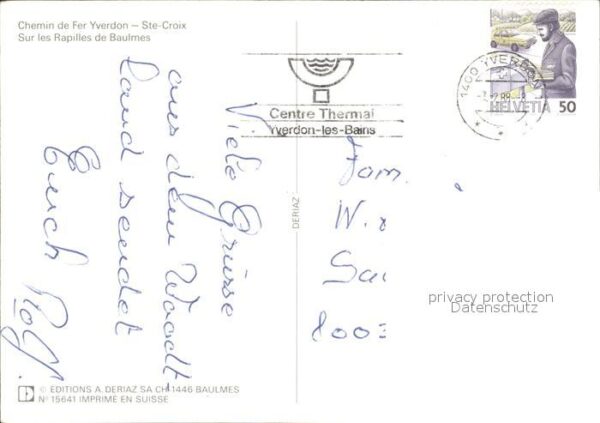 Chemin de Fer Yverdon – Ste-Croix
Sur les Rapilles de Baulmes
Centre Thermal
Yverdon-les-Bains
1400 YVERDON
HELVETIA 50
Viele Grüsse
aus dem Waadt-
land sendet
Euch Rolf.
DERIAZ
Fam.
W.
8003
privacy protection
Datenschutz
© EDITIONS A. DERIAZ SA CH 1446 BAULMES
N° 15641 IMPRIMÉ EN SUISSE